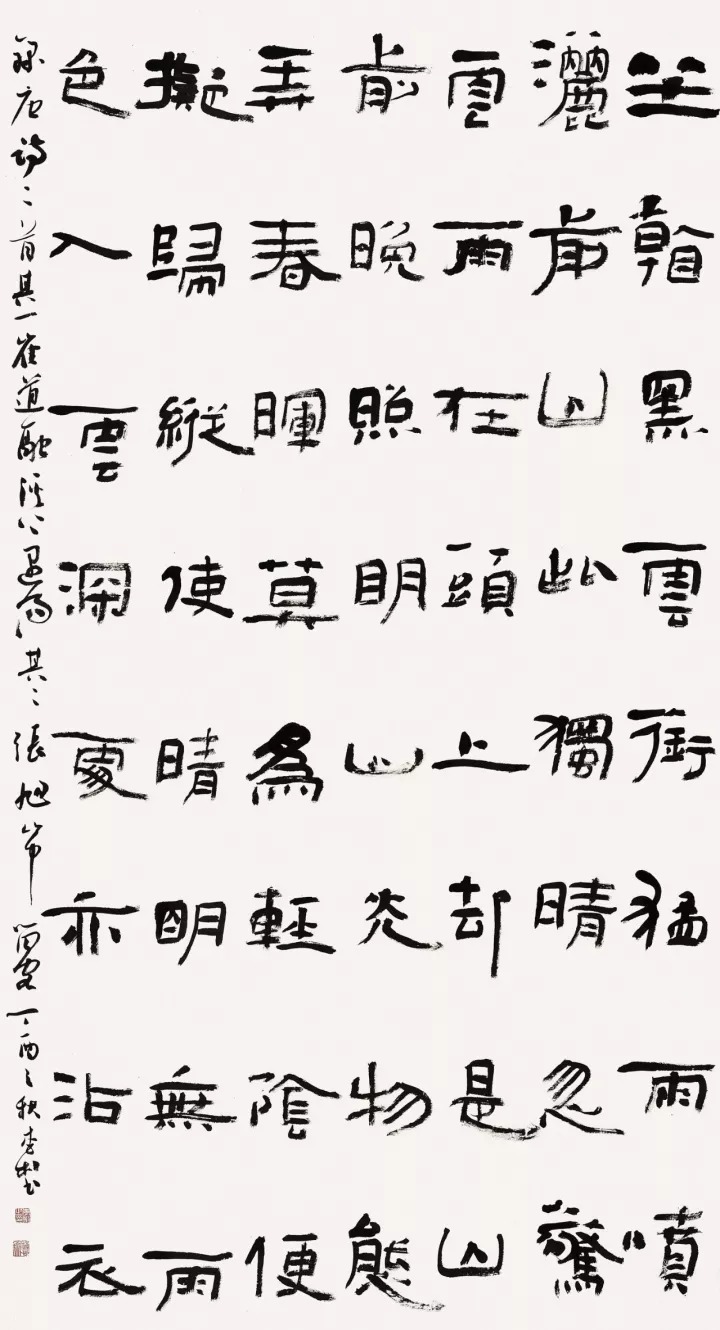 坐看黑雲銜猛雨噴
灑前山此獨晴忽驚
雲雨在頭上却是山
前晚照明山光物態
弄春暉莫爲輕陰便
擬歸縱使晴明無雨
色入雲深處亦沾衣
錄唐詩二首其一崔道融溪上遇雨其二張旭山中留客丁酉之秋李